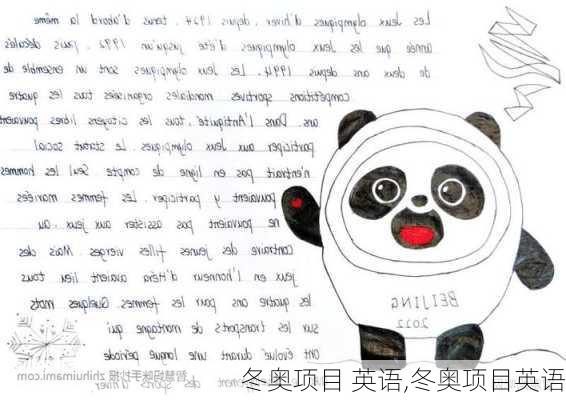 Les Jeux olympiques d'hiver, depuis 1924, tenus d'abord la même
année que les Jeux olympiques d'été jusqu'en 1992, puis décalés
de deux ans depuis 1994. Les Jeux olympiques sont un ensemble de
compétitions sportives mondiales organisées tous les quatre
ans. Dans l'Antiquité, tous les citoyens libres pouvaient
participer aux Jeux olympiques. Le statut social
n'entrait pas en ligne de compte. Seul les hommes
pouvaient y participer. Les femmes mariées
ne pouvaient pas assister aux jeux, au
contraire des jeunes filles vierges. Mais des
jeux en l'honneur d'Héra avaient lieu tous
les quatre ans pour les femmes. Quelques mots
sur les transports de montagne qui
ont évolué durant une longue période
des sports d'hiver
BEIJING
2022
智慧妈咪手抄报 zhihuimami.com
冬奥项目 英语,冬奥项目英语